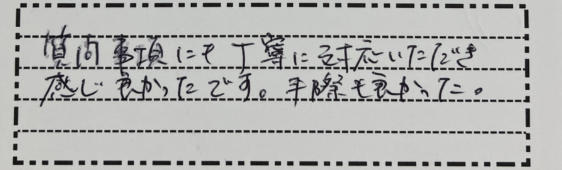 質問事項にも丁寧に対応いただき
感じ良かったです。手際も良かった。